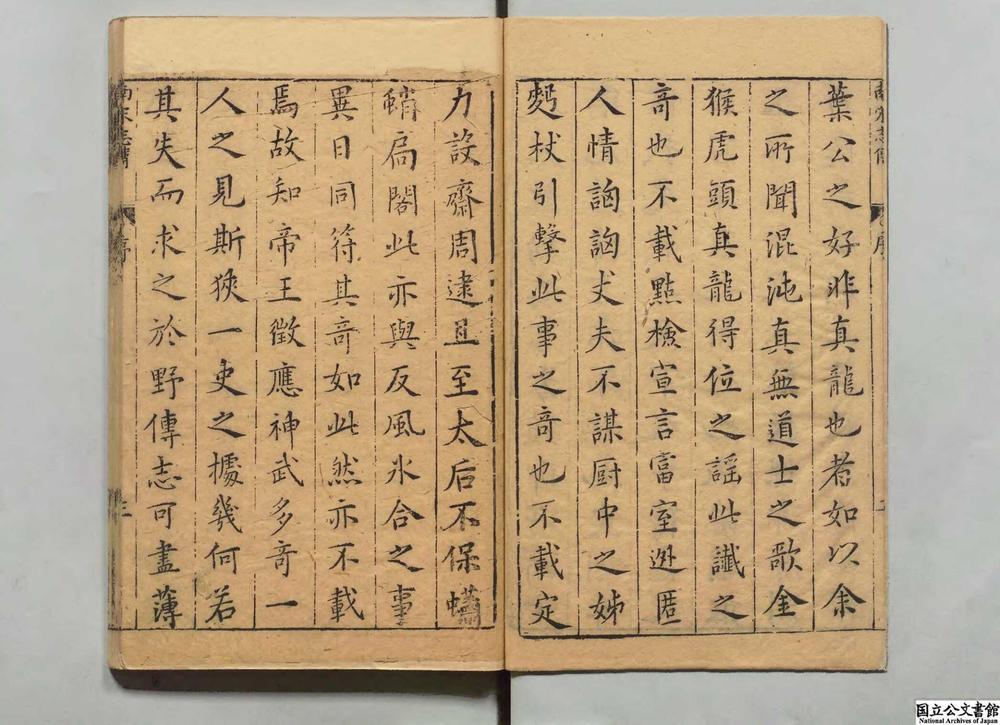 葉公之好非真龍也若如以余
之所聞混沌真無道士之歌金
猴虎頭真龍得位之謡此讖之
竒也不載㸃檢宣言富室逊匿
人情詾詾丈夫不謀厨中之姊
麪杖引擊此事之竒也不載定
力設齋周逮且至太后不保蠨
蛸扃閣此亦與反風氷合之事
異日同符其竒如此然亦不載
焉故知帝王徵應神武多竒一
人之見斯狹一史之據幾何若
其失而求之於野傳志可盡薄
序
三
国立公文書館
National Archives of Japan